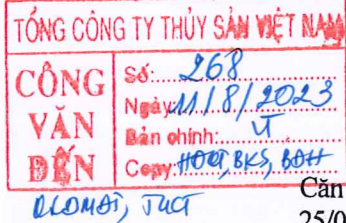 TỔNG CÔNG TY THỦY SẢN VIỆT NAM
CÔNG VĂN ĐẾN
Số: 268
Ngày 11/8/2023
Bản chính: VT
Copy: HĐQT, BKS, BĐH
TLCT
Căn
25/0